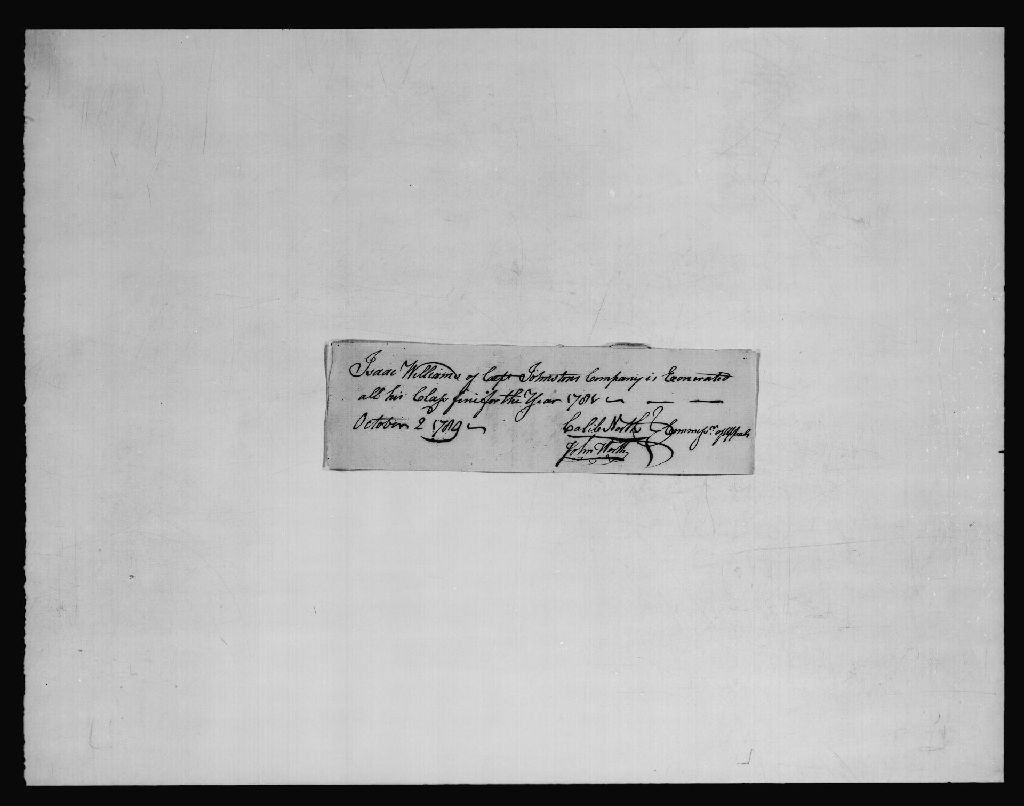 Isaac Williams of Capt Johnstons Company is Exonerated
all his Class fines for the Year 1788
October 2 1789 Caleb North Commissrs of Appeals
John North